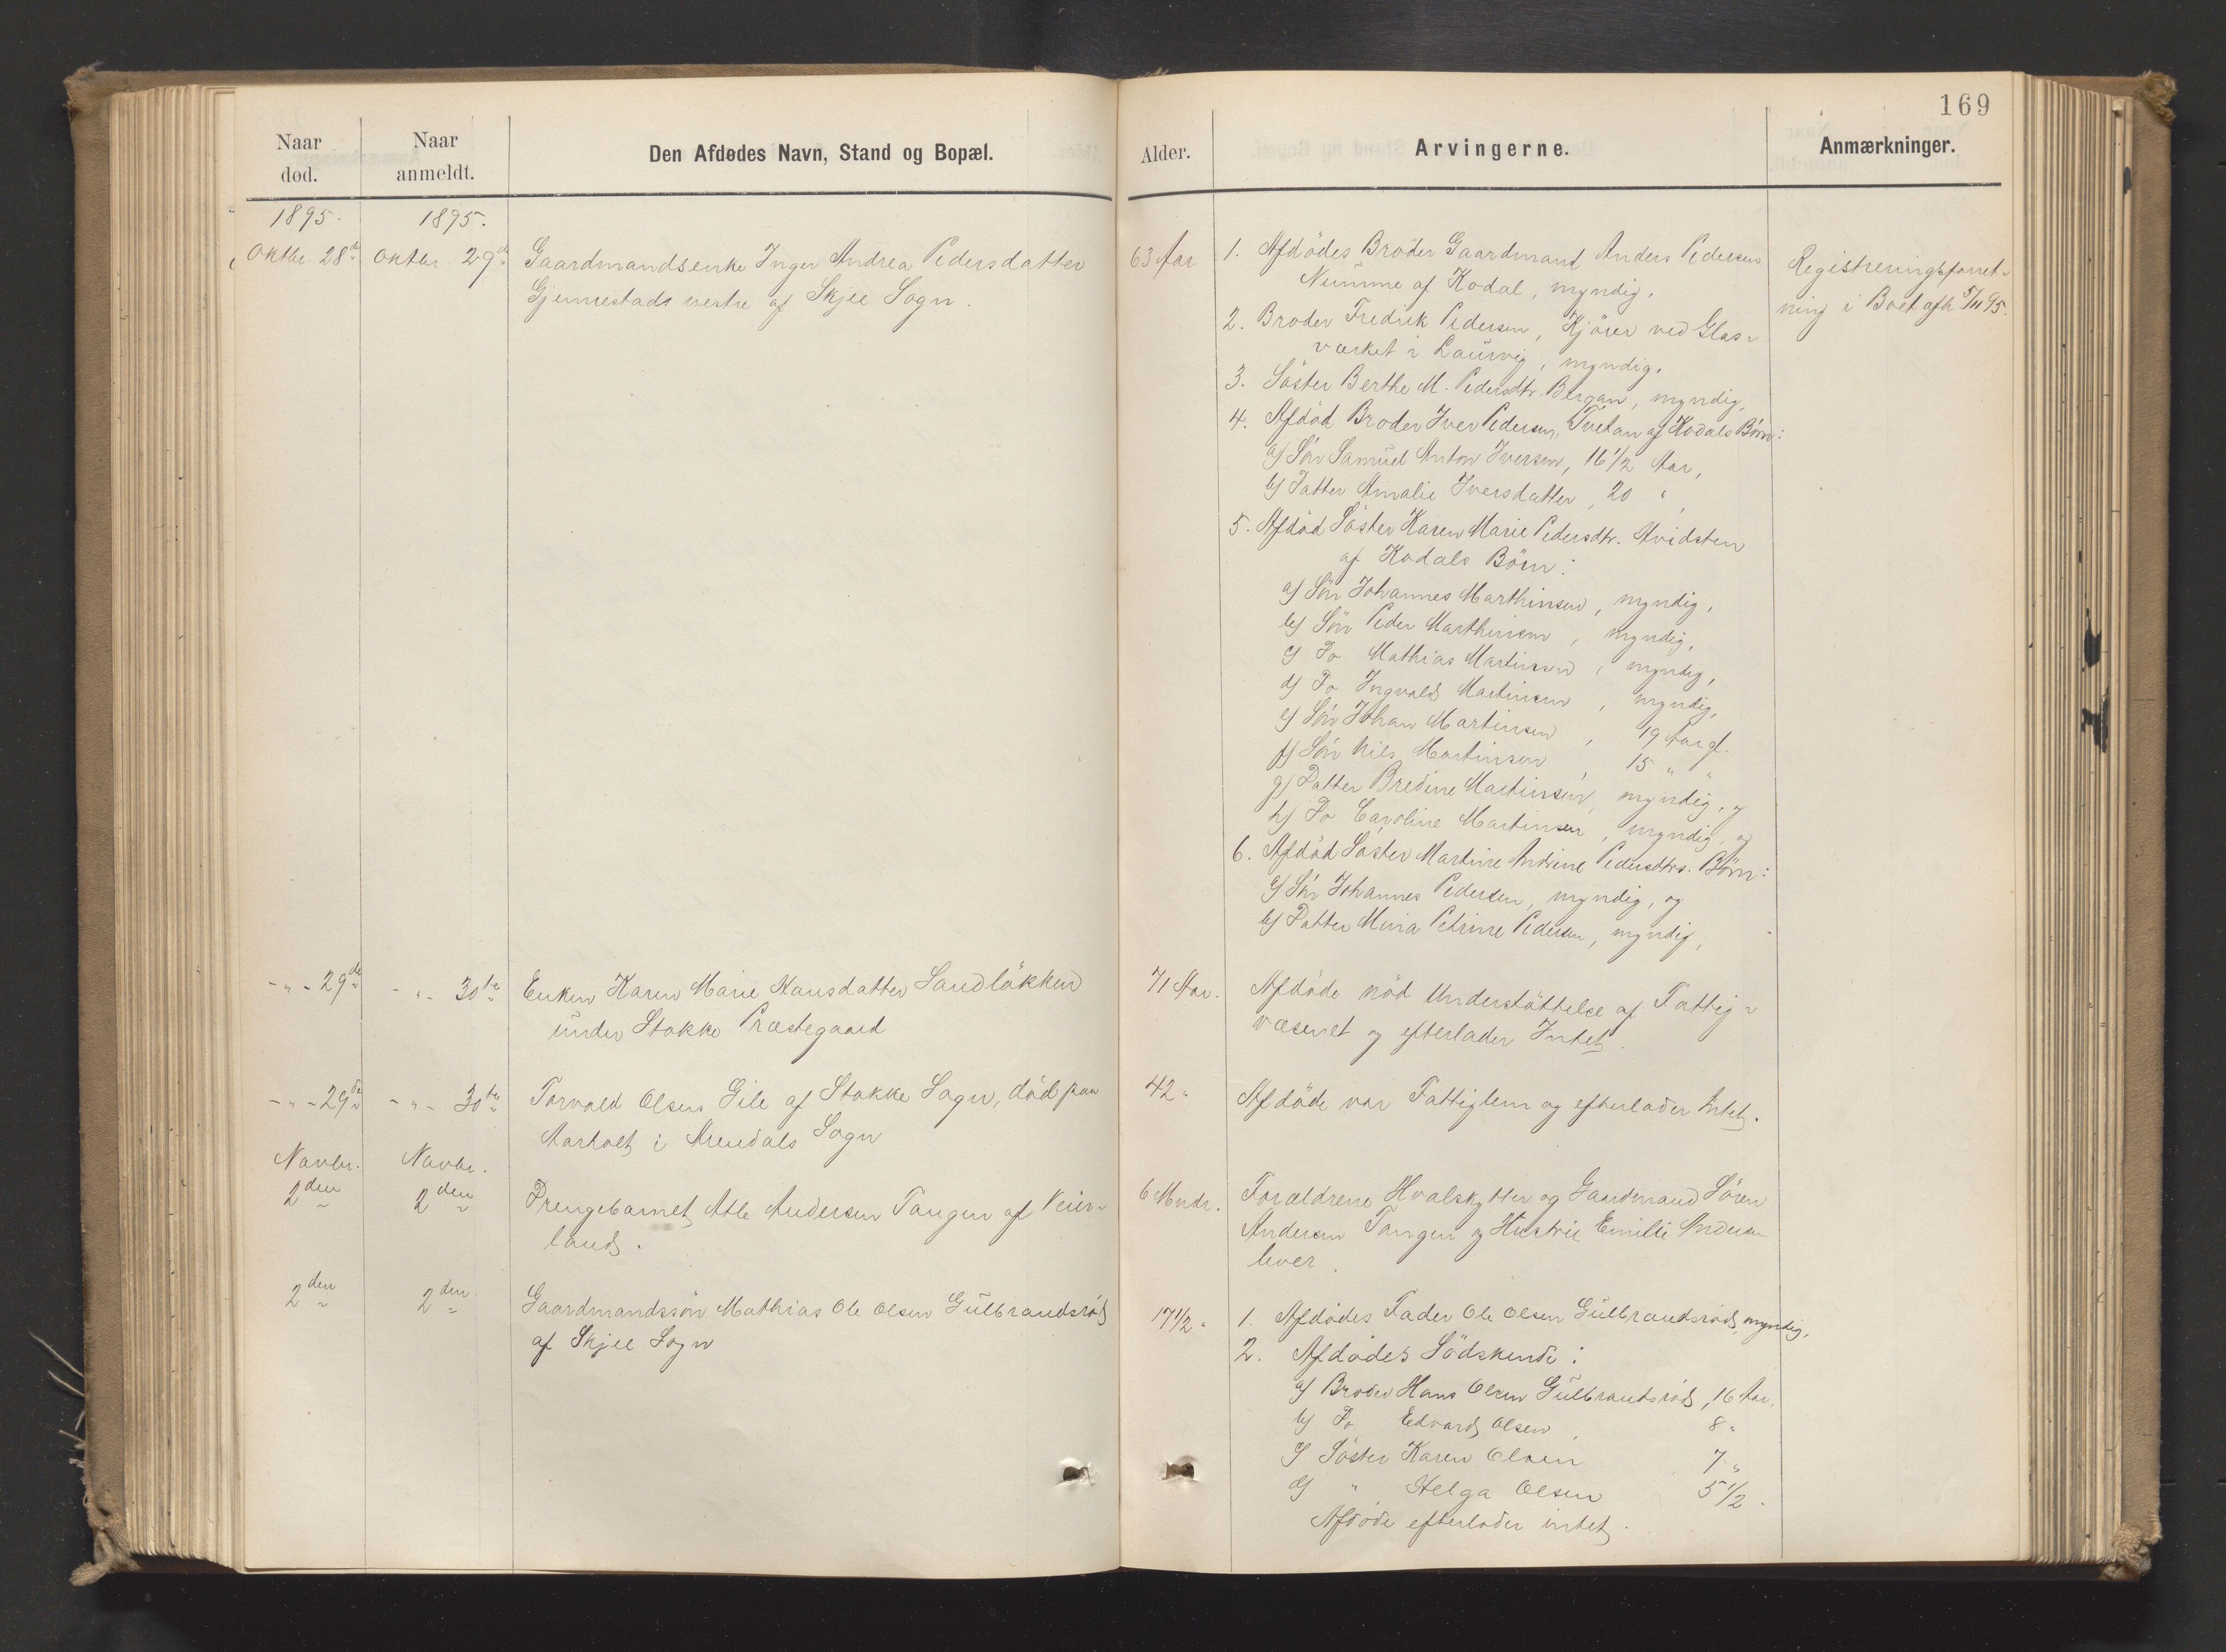 169
Naar død.
Naar anmeldt.
Den Afdødes Navn, Stand og Bopæl.
Alder.
Arvingerne.
Anmærkninger.
1895. 1895.
Oktbr. 28de Oktbr. 29de Gaardmandsenke Inger Andrea Pedersdatter
Gjennestads vestre af Skjee Sogn.
63 Aar
1. Afdödes Broder Gaardmand Anders Pedersen
Numme af Kodal, myndig.
2. Broder Fredrik Pedersen, Kjörer ved Glas-
værket i Laurvig, myndig.
3. Söster Berthe M. Pedersdtr. Bergan, myndig,
4. Afdöd Broder Iver Pedersen, Tvetan af Kodals Börn:
a) Sön Samuel Anton Iversen, 16 1/2 Aar,
b) Datter Amalie Iversdatter, 20 "
5. Afdöd Söster Karen Marie Pedersdtr. Hvidsten
af Kodals Börn:
a) Sön Johannes Marthinsen, myndig,
b) Sön Peder Marthinsen, myndig,
c) Do Mathias Martinsen, myndig,
d) Do Ingvald Martinsen, myndig,
e) Sön Johan Martinsen, 19 Aar gl.
f) Sön Nils Martinsen, 15 " "
g) Datter Bredine Martinsen, myndig, og
h) Do Caroline Martinsen, myndig, og
6. Afdöd Söster Martine Andrine Pedersdtrs. Börn:
a) Sön Johannes Pedersen, myndig, og
b) Datter Mina Petrine Pedersen, myndig,
Registreringsforret-
ning i Boet afh 5/11 95.
- " - 29de - " - 30te Enken Karen Marie Hansdatter Sandlökken
under Stokke Præstegaard
71 Aar.
Afdöde nöd Understöttelse af Fattig-
væsenet og efterlader Intet.
- " - 29de - " - 30te Torvald Olsen Gile af Stokke Sogn, död paa
Aarholt i Arendals Sogn
42 "
Afdöde var Fattiglem og efterlader Intet.
Novbr. Novbr.
2den 2den Drengebarnet Atle Andersen Tangen af Veier-
land.
6 Mndr.
Forældrene Hvalskytter og Gaardmand Sören
Andersen Tangen og Hustru Emilie Andersen
lever.
2den 2den Gaardmandssön Mathias Ole Olsen Gulbrandsröd
af Skjee Sogn
17 1/2 "
1. Afdödes Fader Ole Olsen Gulbrandsröd, myndig,
2. Afdödes Södskende:
a) Broder Hans Olsen Gulbrandsröd, 16 Aar.
b) Do Edvard Olsen, 8 "
c) Söster Karen Olsen 7 "
d) " Helga Olsen 5 1/2 "
Afdöde efterlader intet.